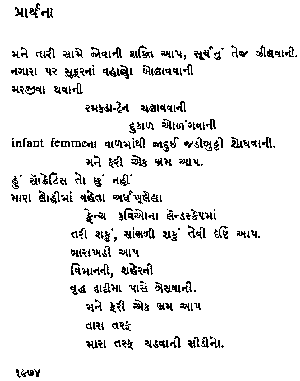 પ્રાર્થના
મને તારી સામે જોવાની શક્તિ આપ, સૂર્યનું તેજ ઝીલવાની.
નગારા પર સુદૂરનાં વહાણો બોલાવવાની
મરજીવા થવાની
રમકડા-ટ્રેન ચલાવવાની
દુકાળ ઓળંગવાની
infant femmeના વાળમાંથી જાદુઈ જડીબુટ્ટી શોધવાની.
મને ફરી એક ભ્રમ આપ.
હું સોક્રેટિસ તો છું નહીં
મારા લોહીમાં વહેતા અર્ધભૂલેલા
ફ્રેન્ચ કવિઓના લૅન્ડસ્કેપમાં
તરી શકું, સાંભળી શકું તેવી દૃષ્ટિ આપ.
બારાખડી આપ
વિમાનની, શહેરની
વૃદ્ધ દાદીમા પાસે બેસવાની.
મને ફરી એક ભ્રમ આપ
તારા તરફ
મારા તરફ ચડવાની સીડીનો.
૧૯૭૪